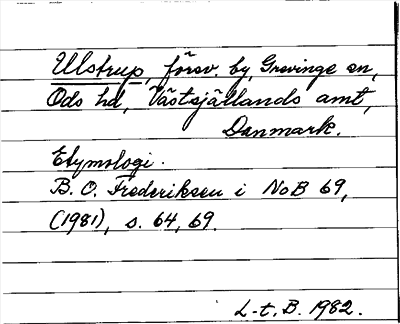 Ulstrup, försv. by, Grevinge sn,
Ods hd, Västsjällands amt,
Danmark.
Etymologi.
B. O. Frederiksen i NoB 69,
(1981), s. 64, 69.
L-t. B. 1982.